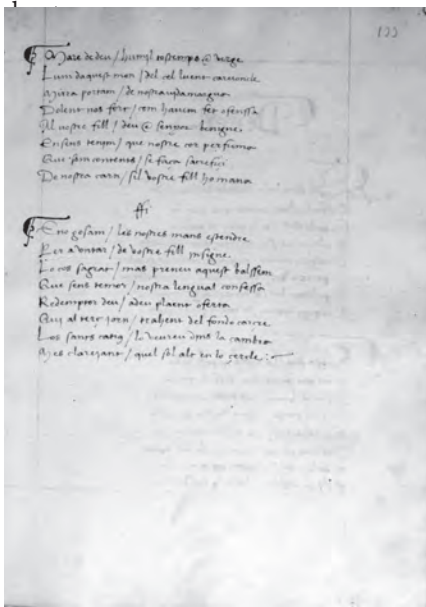 133
Mare de deu / humil tostemps @ verge
Lum daquest mon / del cel luent carvoncle
Mirra portam / de nostra
Dolent nos fort / com havem fet ofenssa
Al vostre fill / deu @ senyor benigne
Ensens tenim / que nostre cor perfuma
Que sem contents / se faça sacrifici
De nostra carn / sil vostre fill ho mana
ffi
E no gosam / les nostres mans estendre
Per a untar / de vostre fill insigne
Lo cos sagrat / mas preneu aquest balssem
Que sens temor / nostra lengua confessa
Redemptor deu / adeu plaent oferta
Qui al terç jorn / trahent del fondo carcre
Los sants catius / lo veureu dins la cambra
Mes clarejant / quel sol alt en lo cercle :~